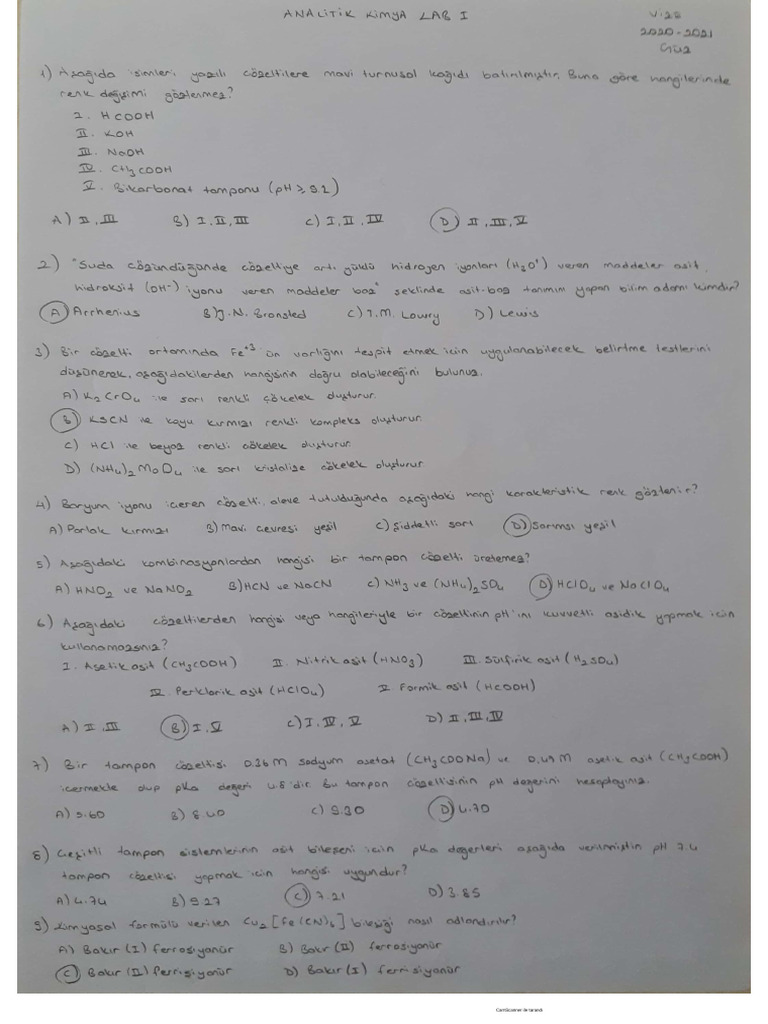 ANALİTİK KİMYA LAB I
V.28
2020-2021
Güz
1) Aşağıda isimleri yazılı çözeltilere mavi turnusol kağıdı batırılmıştır. Buna göre hangilerinde
renk değişimi gözlenmez?
I. HCOOH
II. KOH
III. NaOH
IV. CH3COOH
V. Bikarbonat tamponu (pH ≥ 9.2)
A) II, III B) I, II, III C) I, II, IV D) II, III, V
2) "Suda çözündüğünde çözeltiye artı yüklü hidrojen iyonları (H3O+) veren maddeler asit,
hidroksit (OH-) iyonu veren maddeler baz" şeklinde asit-baz tanımını yapan bilim adamı kimdir?
A) Arrhenius B) J.N. Bronsted C) T.M. Lowry D) Lewis
3) Bir çözelti ortamında Fe+3 'ün varlığını tespit etmek için uygulanabilecek belirtme testlerini
düşünerek, aşağıdakilerden hangisinin doğru olabileceğini bulunuz.
A) K2CrO4 ile sarı renkli çökelek oluşturur.
B) KSCN ile koyu kırmızı renkli kompleks oluşturur.
C) HCl ile beyaz renkli çökelek oluşturur.
D) (NH4)2MoO4 ile sarı kristalize çökelek oluşturur
4) Baryum iyonu içeren çözelti, aleve tutulduğunda aşağıdaki hangi karakteristik renk gözlenir?
A) Parlak kırmızı B) Mavi çevresi yeşil C) Şiddetli sarı D) Sarımsı yeşil
5) Aşağıdaki kombinasyonlardan hangisi bir tampon çözelti üretemez?
A) HNO2 ve NaNO2 B) HCN ve NaCN C) NH3 ve (NH4)2SO4 D) HClO4 ve NaClO4
6) Aşağıdaki çözeltilerden hangisi veya hangileriyle bir çözeltinin pH'ını kuvvetli asidik yapmak için
kullanamazsınız?
I. Asetik asit (CH3COOH) II. Nitrik asit (HNO3) III. Sülfirik asit (H2SO4)
IV. Perklorik asit (HClO4) V. Formik asit (HCOOH)
A) II, III B) I, V C) I, IV, V D) II, III, IV
7) Bir tampon çözeltisi 0.36M sodyum asetat (CH3COONa) ve 0,49 M asetik asit (CH3COOH)
içermekte olup pKa değeri 4.8'dir. Bu tampon çözeltisinin pH değerini hesaplayınız.
A) 9.60 B) 8.40 C) 9.30 D) 4.70
8) Çeşitli tampon sistemlerinin asit bileşeni için pKa değerleri aşağıda verilmiştir. pH 7.4
tampon çözeltisi yapmak için hangisi uygundur?
A) 4.74 B) 9.27 C) 7.21 D) 3.85
9) Kimyasal formülü verilen Cu2[Fe(CN)6] bileşiği nasıl adlandırılır?
A) Bakır (I) ferrosiyanür B) Bakır (II) ferrosiyanür
C) Bakır (II) ferrisiyanür D) Bakır (I) ferrisiyanür
CamScanner ile tarandı